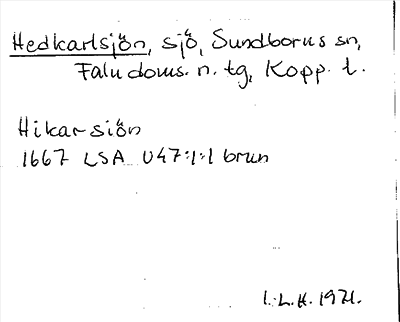 Hedkarlsjön, sjö, Sundborns sn,
Falu doms. n. tg, Kopp. l.
Hikarsiön
1667 LSA U47:1:1 brun
I.L.H. 1971.